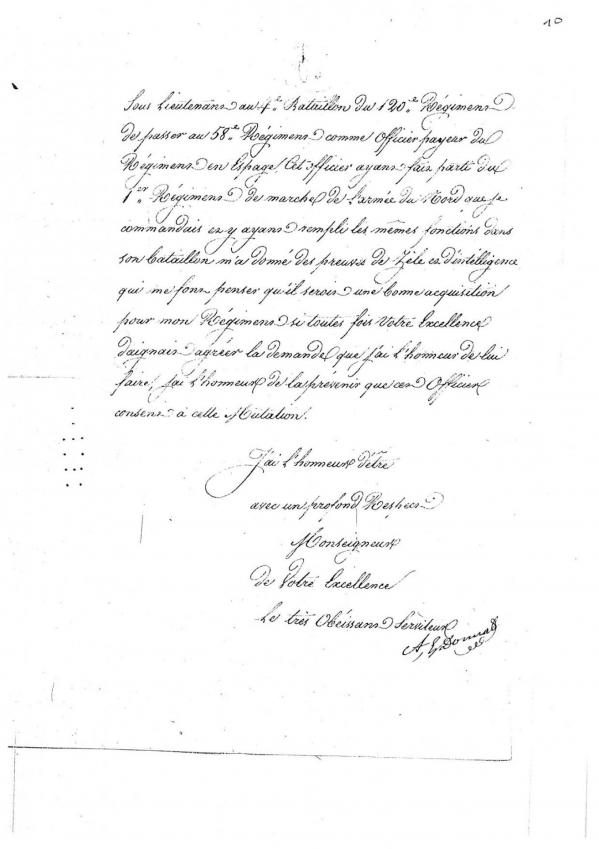 10
Sous Lieutenant au 4.e Bataillon du 120.e Régiment
de passer au 58.e Régiment comme Officier payeur du
Régiment en Espage, Cet officier ayant fait parti du
1.er Régiment de marche de l'armée du Nord que je
commandais et y ayant rempli les mêmes fonctions dans
son bataillon m'a donné des preuves de zèle et d'intelligence
qui me font penser qu'il serois une bonne acquisition
pour mon Régiment si toutes fois Votre Excellence
daignait agréer la demande que j'ai l'honneur de lui
faire, j'ai l'honneur de la prévenir que cet Officier
consent à cette Mutation.
J'ai l'honneur d'être
avec un profond Respect
Monseigneur
de Votre Excellence
Le très Obéissant Serviteur